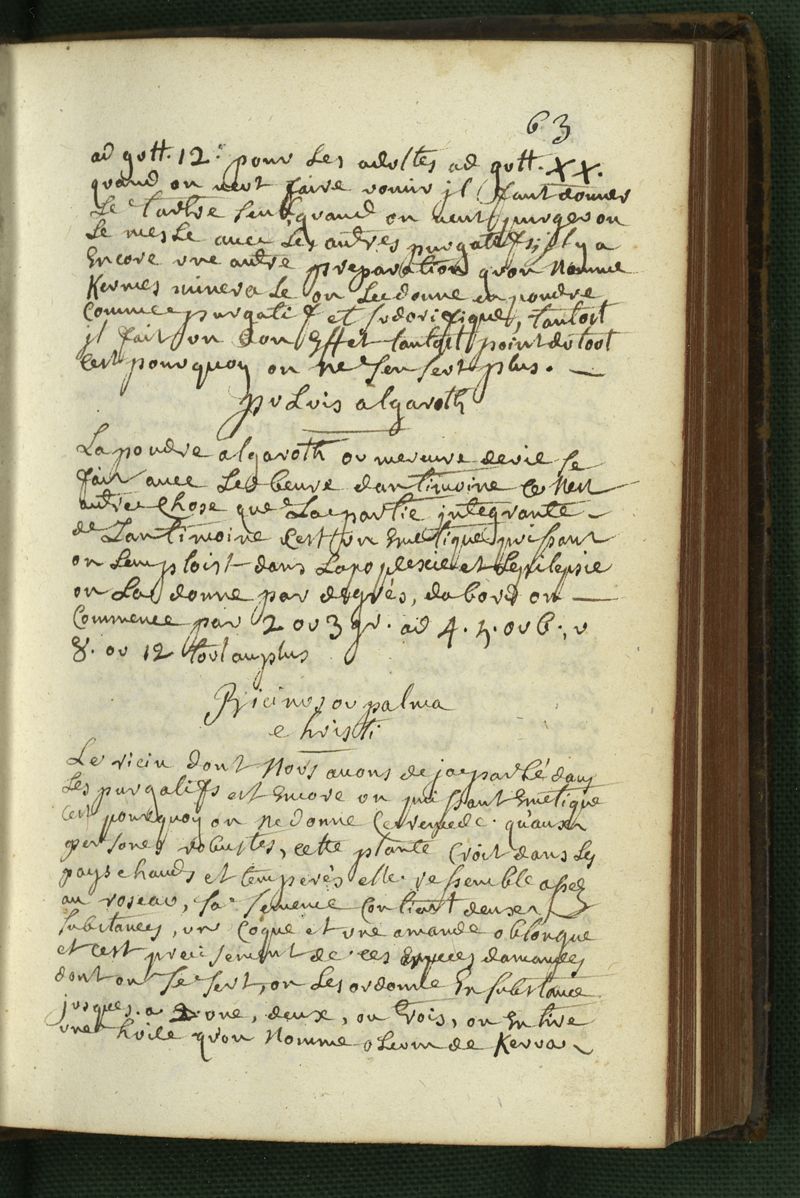 63
ad gutt. 12. pour les adultes ad gutt. XX.
quand on veut faire vomir jl faut donner
le tartre seul, quand on veut purger on
le mesle avec les autres purgatifs, jl y a
Encore une autre preparation qu'on Nomme
Kermes minerale on le donne en poudre
Comme purgatif et sudorifique, tantost
jl fait un bon Effet tantost point du tout
C'est pourquoy on Ne s'en sert plus. —
pulvis algaroth
La poudre algaroth ou mercure de vie se
fait avec le beure d'antimoine Ce N'est
autre Chose que La partie integrante
de L'antimoine C'est un Emetique puissant
on L'emploist dans L'apoplexie et L'epilepsie
on La donne par degrés, d'abord on —
Commence par 2 ou 3 gr. ad 4. 5. ou 6., v
8. ou 12 tout au plus
Ricinus ou palma
christi
Le ricin dont Nous avons deja parlé dans
Les purgatifs est Encore un puissant Emetique
C'est pourquoy on Ne donne Ce remede qu'aux
persones robustes, cette plante Croit dans Les
pays chauds et temperés elle ressemble assez
au roseau, sa semence Contient deux
substances, un Coque et une amande oblongue
et C'est precisement de ces Especes d'amandes
dont on se sert, on Les ordonne En substance
jusques a une, deux, ou trois, on En tire
une huile qu'on Nomme oleum de Kerva